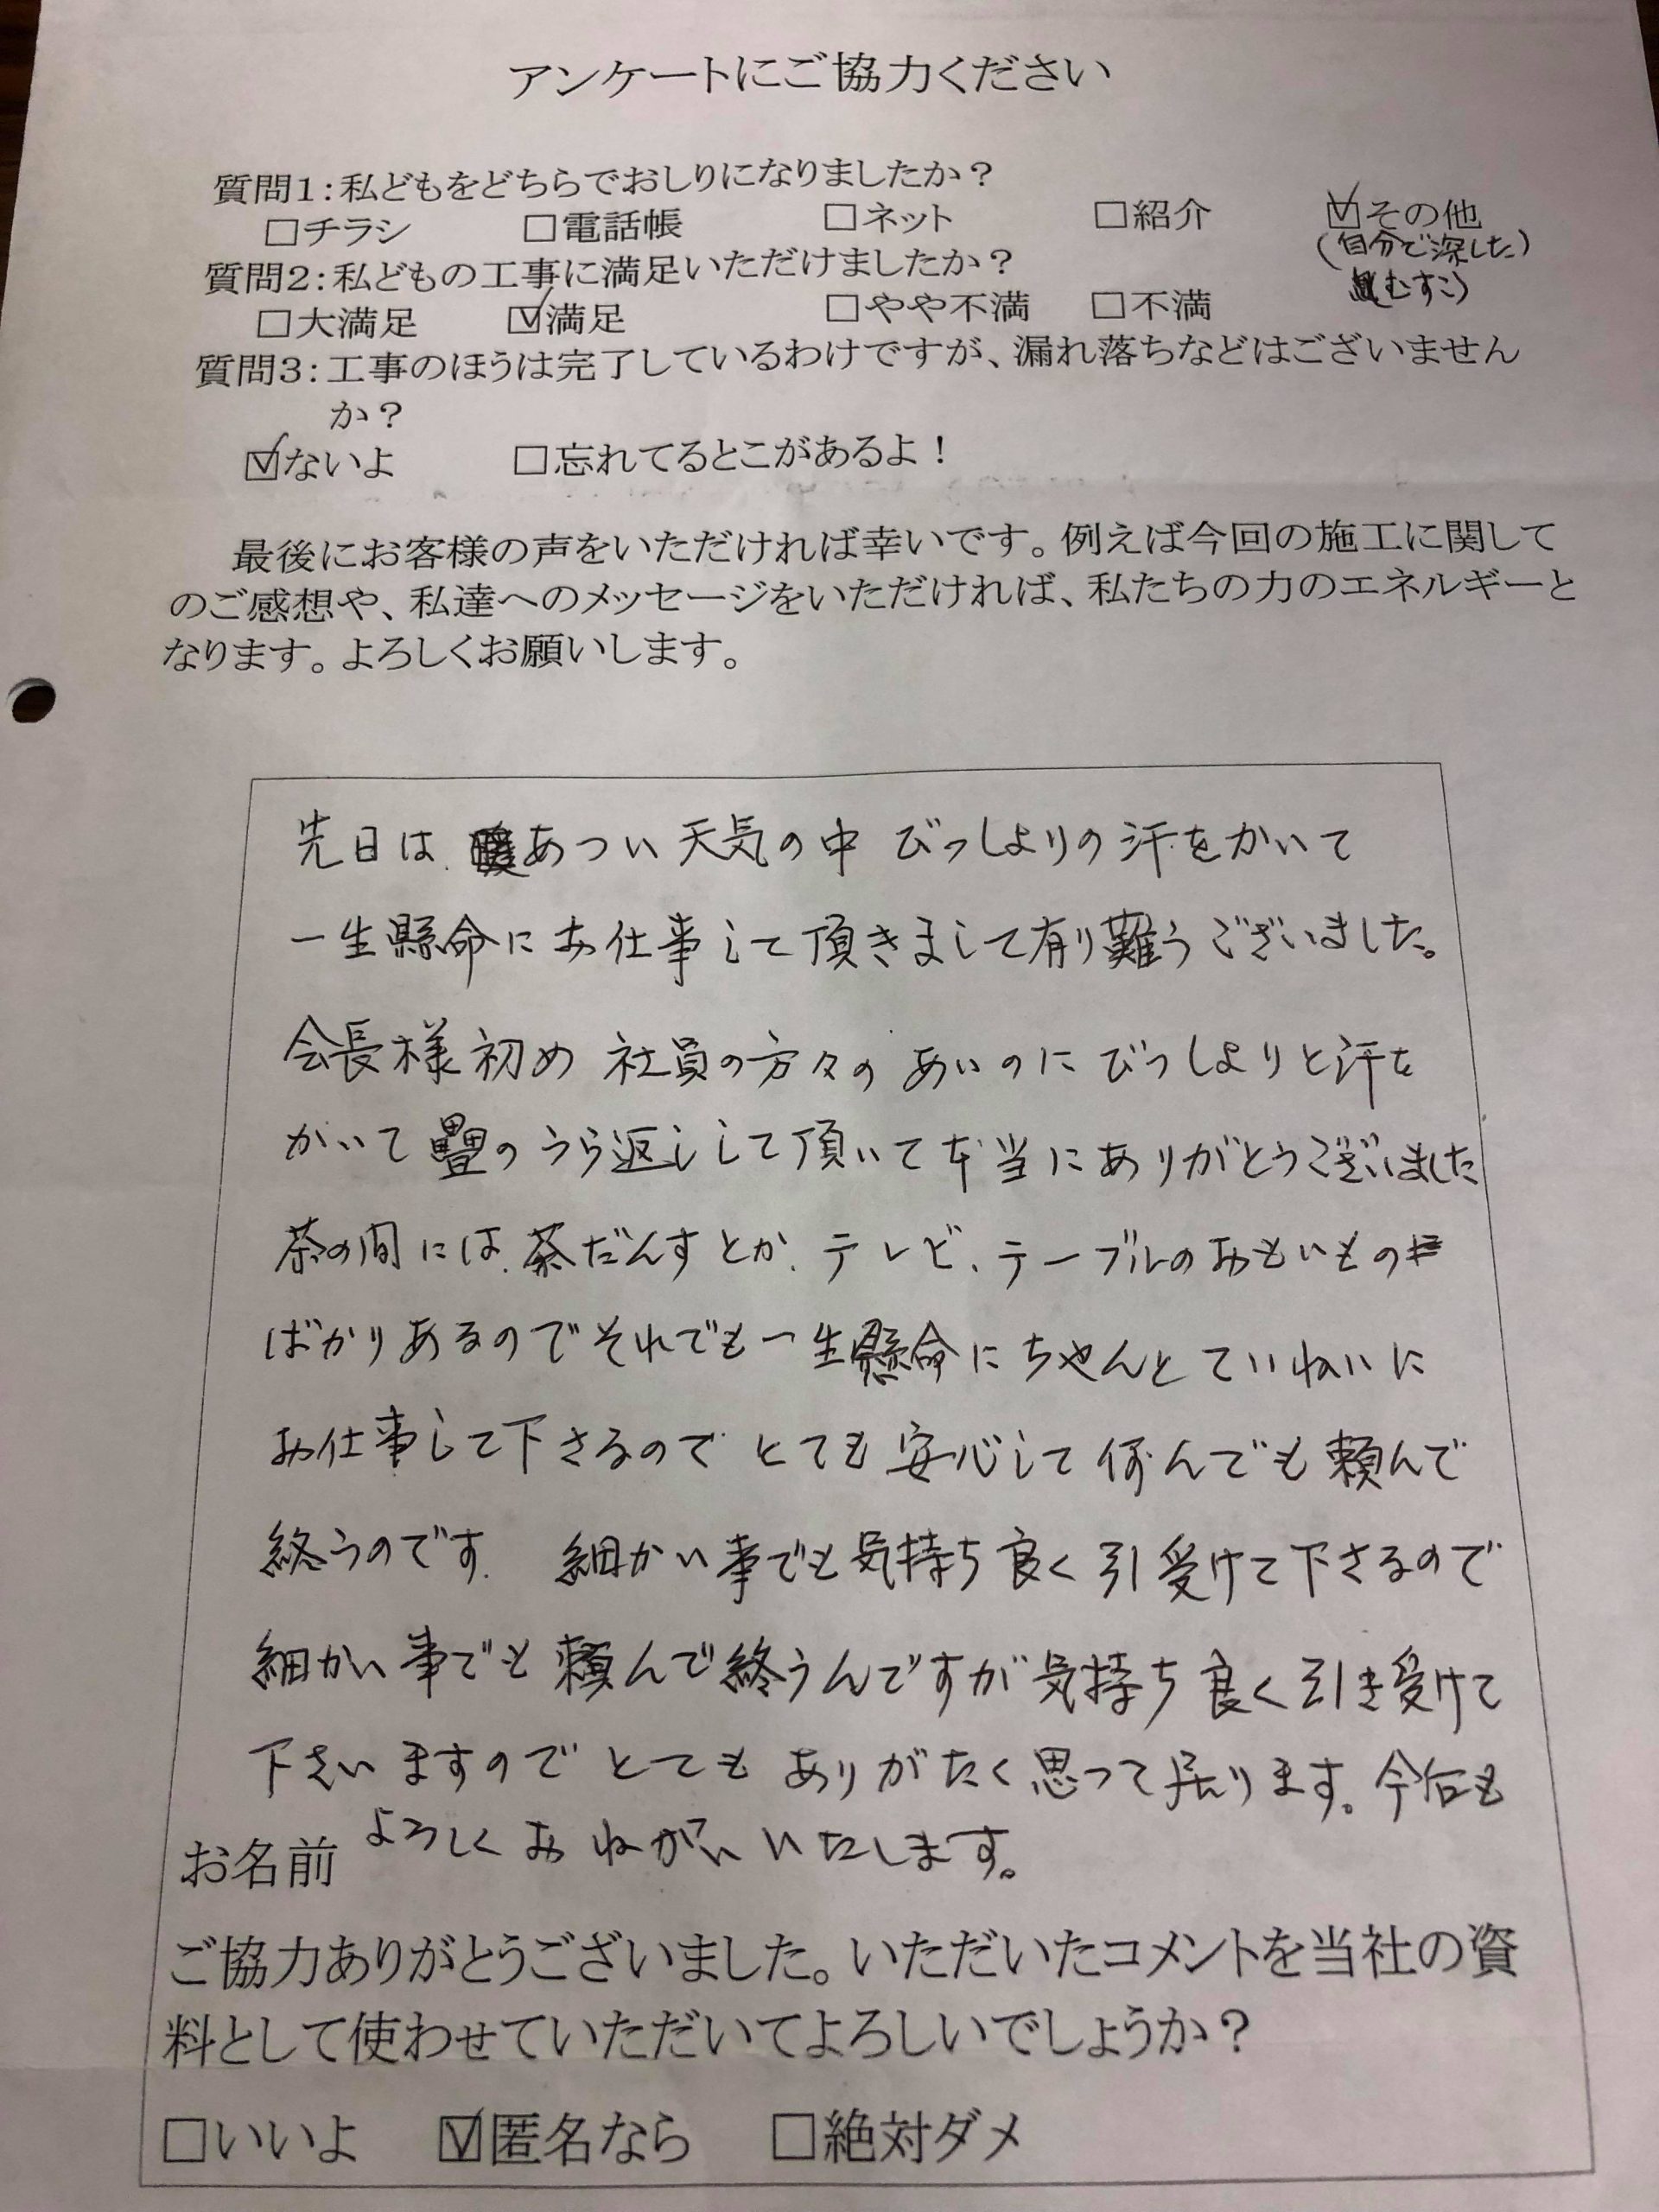 アンケートにご協力ください
質問1:私どもをどちらでおしりになりましたか?
□チラシ □電話帳 □ネット □紹介 ☑その他
(自分で深した)
むすこ)
質問2:私どもの工事に満足いただけましたか?
□大満足 ☑満足 □やや不満 □不満
質問3:工事のほうは完了しているわけですが、漏れ落ちなどはございません
か?
☑ないよ □忘れてるとこがあるよ!
最後にお客様の声をいただければ幸いです。例えば今回の施工に関して
のご感想や、私達へのメッセージをいただければ、私たちの力のエネルギーと
なります。よろしくお願いします。
先日は、あつい天気の中 びっしょりの汗をかいて
一生懸命にお仕事して頂きまして有り難うございました。
会長様初め 社員の方々の あいのに びっしょりと汗を
かいて畳のうら返しして頂いて本当にありがとうございました
茶の間には、茶だんすとか、テレビ、テーブルのおもいもの
ばかりあるのでそれでも一生懸命にちゃんとていねいに
お仕事して下さるので とても 安心して 何んでも 頼んで
終うのです。 細かい事でも気持ち良く引受けて下さるので
細かい事でも頼んで終うんですが気持ち良く引き受けて
下さいますので とても ありがたく思って居ります。今后も
よろしくおねがいいたします。
お名前
ご協力ありがとうございました。いただいたコメントを当社の資
料として使わせていただいてよろしいでしょうか?
□いいよ ☑匿名なら □絶対ダメ